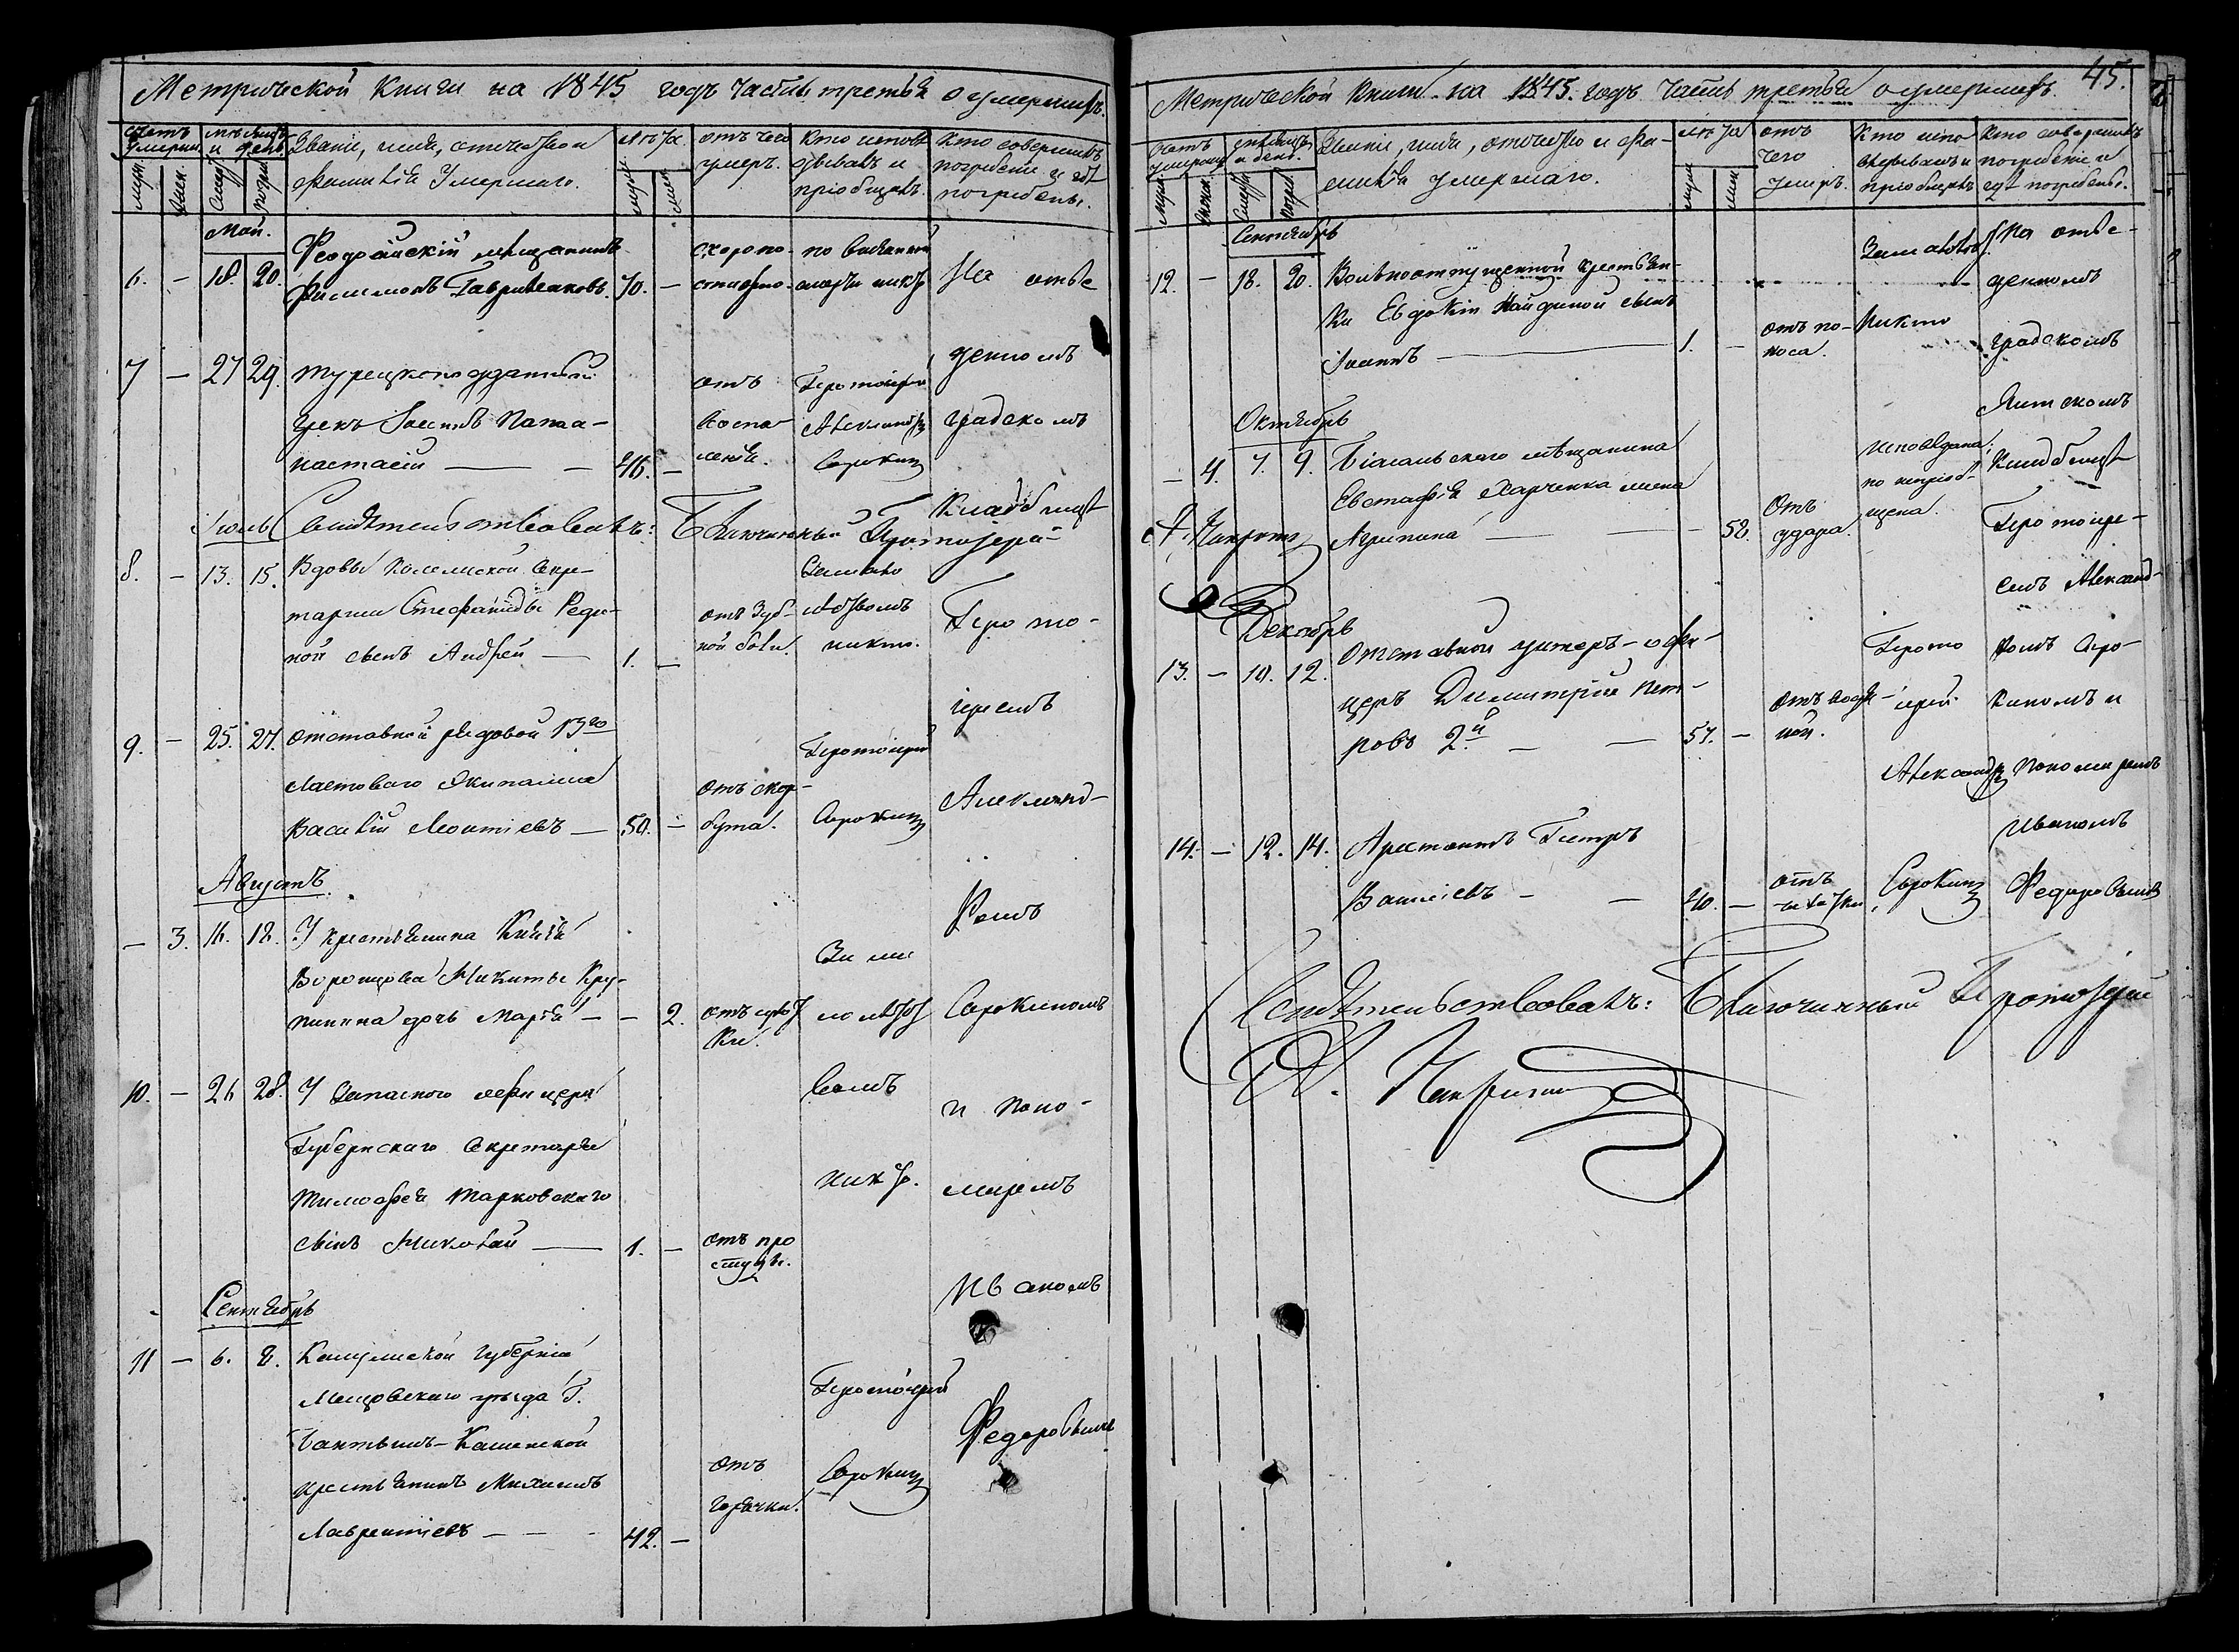 Метрической Книги на 1845 годъ Часть третья о умершихъ.
Счетъ умерш.
мѣсяцъ и день.
Званіе, имя, отчество и
фамилія Умершаго.
лѣта
отъ чего
умеръ.
Кто исповѣ
дывалъ и
пріобщалъ.
Кто совершалъ
погребеніе и гдѣ
погребены.
Май.
6. — 18. 20.
Феодосійскій мѣщанинъ
Филимонъ Гавриленковъ. 70. —
скоропо-
стижно.
по внезапной
смерти никто
На отве
7 — 27 29.
турецкоподданный
грекъ Іоаннъ Папаа-
настасій — — 46. —
отъ
воспа-
ленія.
Протоіерей
Александръ
Сорокинъ
денномъ
градскомъ
Кладбищѣ
Іюль
Свидѣтельствовалъ: Благочинный Протоіерей
8. — 13. 15.
Вдовы Колежской Секре-
тарши Стефаниды Реди-
ной сынъ Андрей — 1. —
отъ Зуб-
ной боли.
За мало
лѣтвомъ
никто.
Прото-
іереемъ
9. — 25. 27.
Отставной рядовой 13го
Ластоваго Экипажа
Василій Леонтіевъ — 50. —
отъ скор-
бута.
Протоіерей
Сорокинъ
Александ-
Августъ.
— 3. 16. 18.
У крестьянина Князя
Воронцова Никиты Кру-
пинина дочь Марія — — 2.
За ма
лолѣтс
вомъ
никто.
ромъ
Сорокинымъ
10. — 26 28.
У Запаснаго лефицера
Губернскаго Секретаря
Тимофея Тарковскаго
сынъ Николай — 1. —
отъ про
студы.
и поно-
маремъ
Иваномъ
Сентябрь
11 — 6. 8.
Калужской губерніи
Мещовскаго уѣзда Г.
Бантышъ-Каменской
крестьянинъ Михаилъ
Лаврентіевъ — — 42. —
отъ
горячки.
Протоіерей
Сорокинъ
Федоровымъ
45.
Метрической книги на 1845. годъ Часть третья о умершихъ
Счетъ умерш
мѣсяцъ и день.
Званіе, имя, отчество и фа-
милія умершаго.
лѣта
отъ
чего
умеръ.
Кто испо
вѣдывалъ и
пріобщалъ
Кто совершалъ
погребеніе и
гдѣ погребены.
Сентябрь
12. — 18. 20.
Вольноотпущенной крестьян-
ки Евдокіи Найдиной сынъ
Іоаннъ — 1. —
отъ по-
носа.
За малолѣт.
Никто
На отве-
денномъ
градскомъ
Ялтскомъ
Октябрь
— 4. 7. 9.
Евстафія Харченка жена
Агрипина — — 58.
Отъ
удара.
Исповѣдана,
но непріоб-
щена.
Кладбищѣ
Протоіре-
емъ Александ-
Декабрь
13. — 10. 12.
Отставной унтеръ-офи-
церъ Димитрій Пет-
ровъ 2й — — 57. —
отъ водя-
ной.
Протоіерей
Александръ
Сорокинъ
ромъ Соро-
кинымъ и
Пономаремъ
Иваномъ
Федоровымъ
14. — 12. 14.
Арестантъ Петръ
Василіевъ — — 40. —
отъ
чахотки
Свидѣтельствовалъ: Благочинный Протоіерей